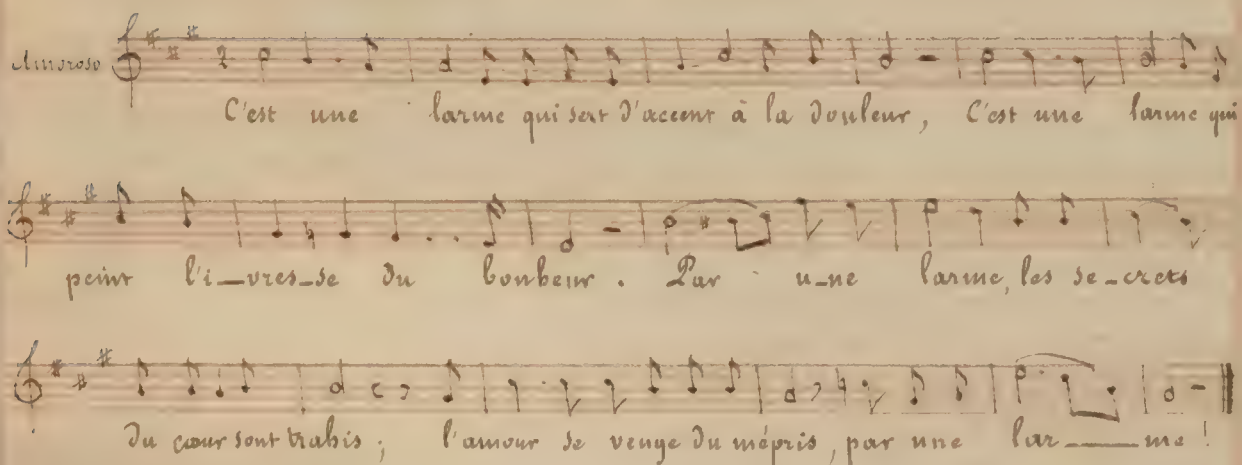 Amoroso
C'est une larme qui sert d'accent à la douleur, C'est une larme qui
peint l'i_vres_se du bonheur. Par u_ne larme, les se_crets
du cœur sont trahis; l'amour se venge du mépris, par une lar___me!